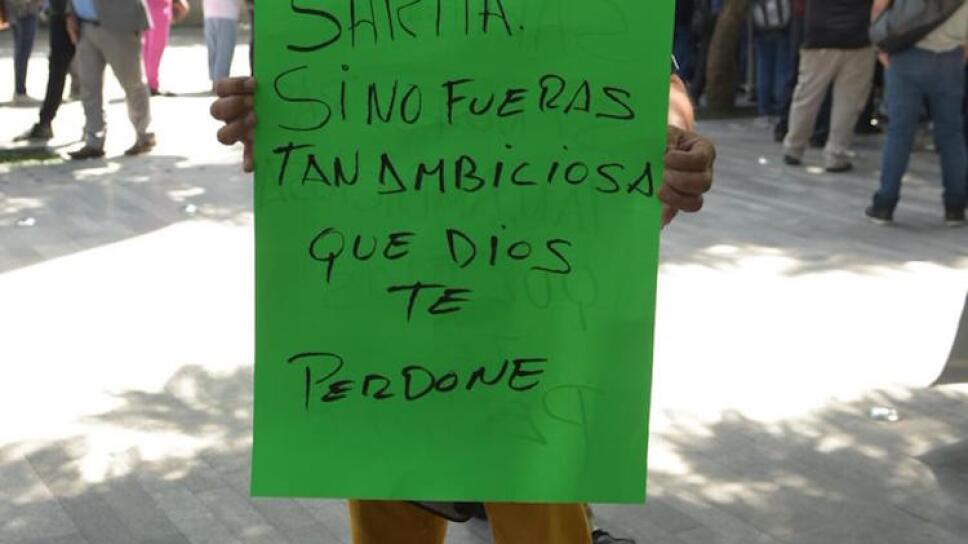 SARITA.
SI NO FUERAS
TAN AMBICIOSA
QUE DIOS
TE
PERDONE